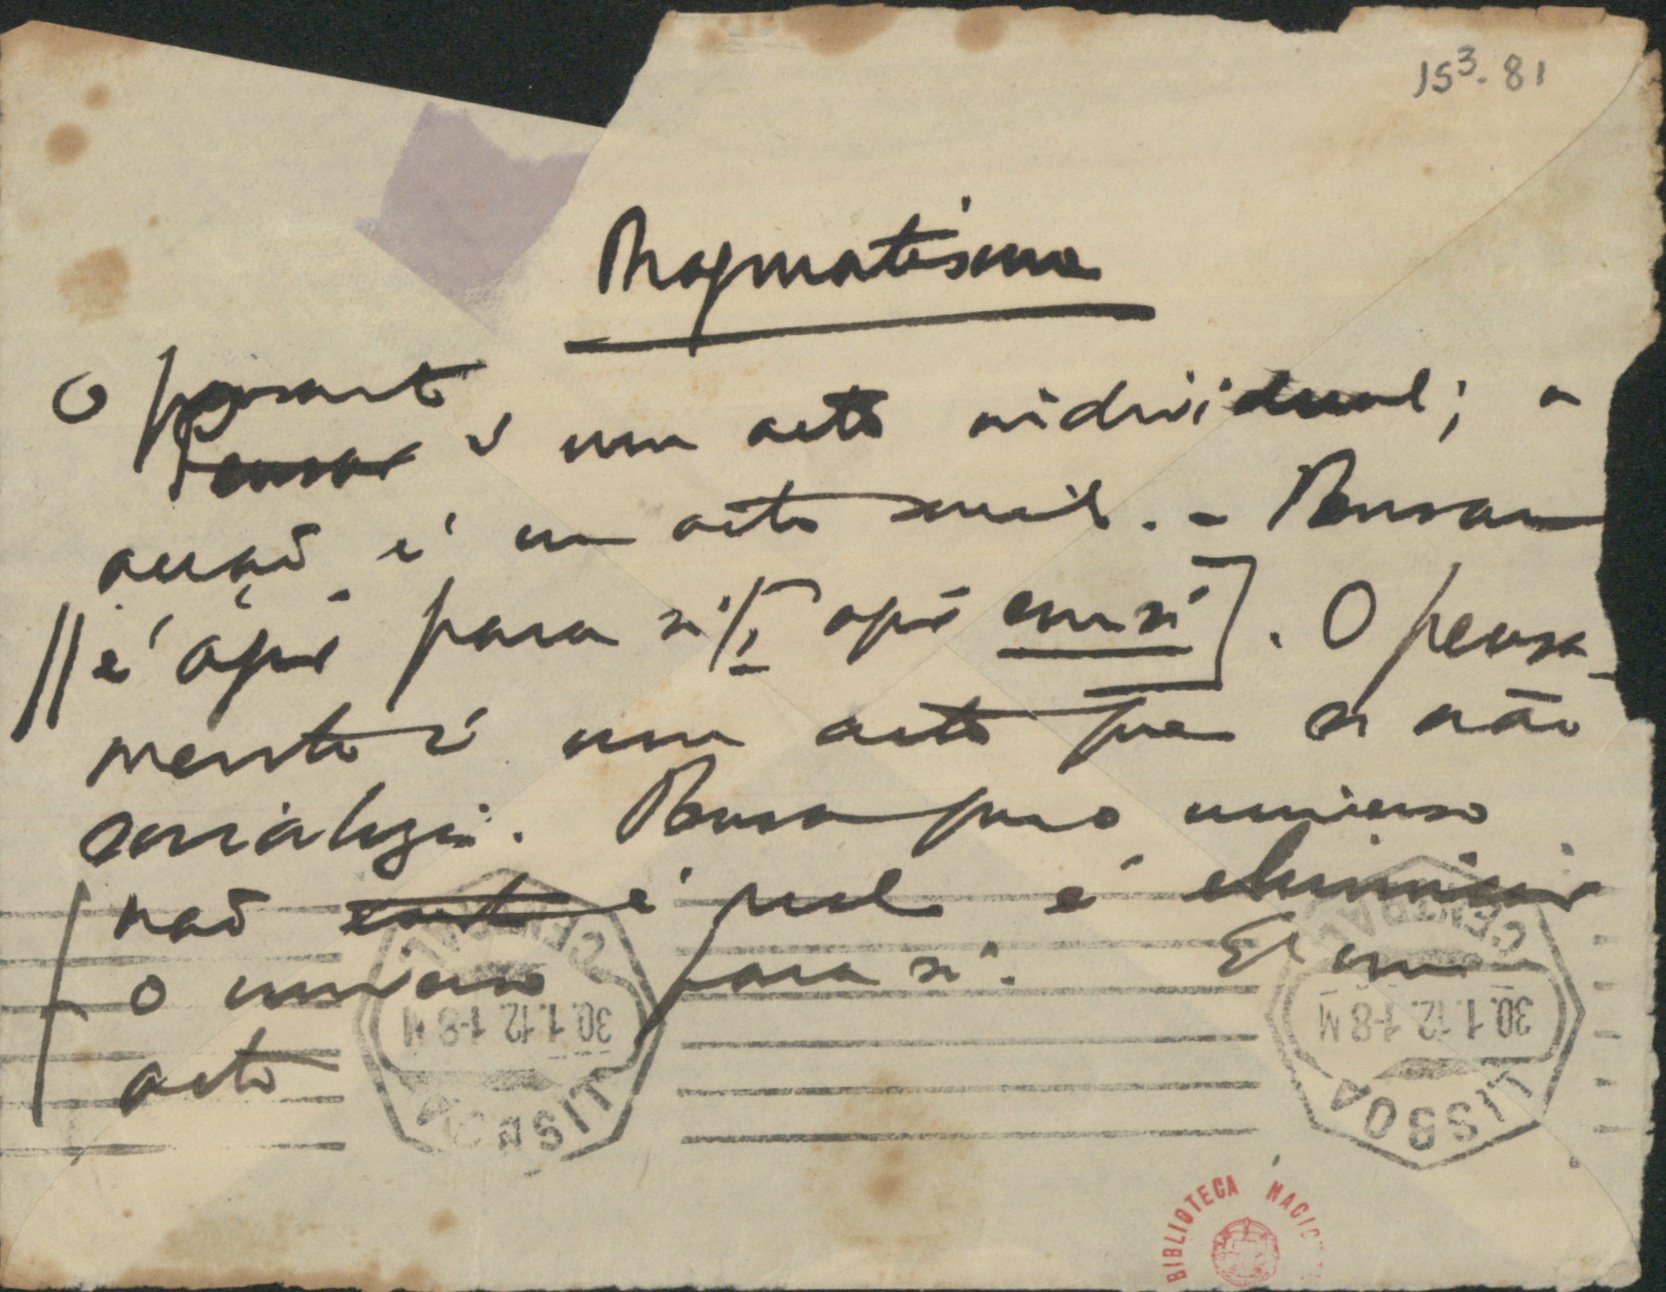 15³-81
Pragmatismo
O pensamento
Pensar é um acto individual; a
acção é um acto social. - Pensar
é agir para si /[, agir em si]. O pensa-
mento é um acto que se não
socializa. Pensar que o universo
não existe é real é eliminar
o universo para si. É um
acto
CENTRAL
30.1.12.1-8M
LISBOA
CENTRAL
30.1.12.1-8M
LISBOA
BIBLIOTECA NACIO